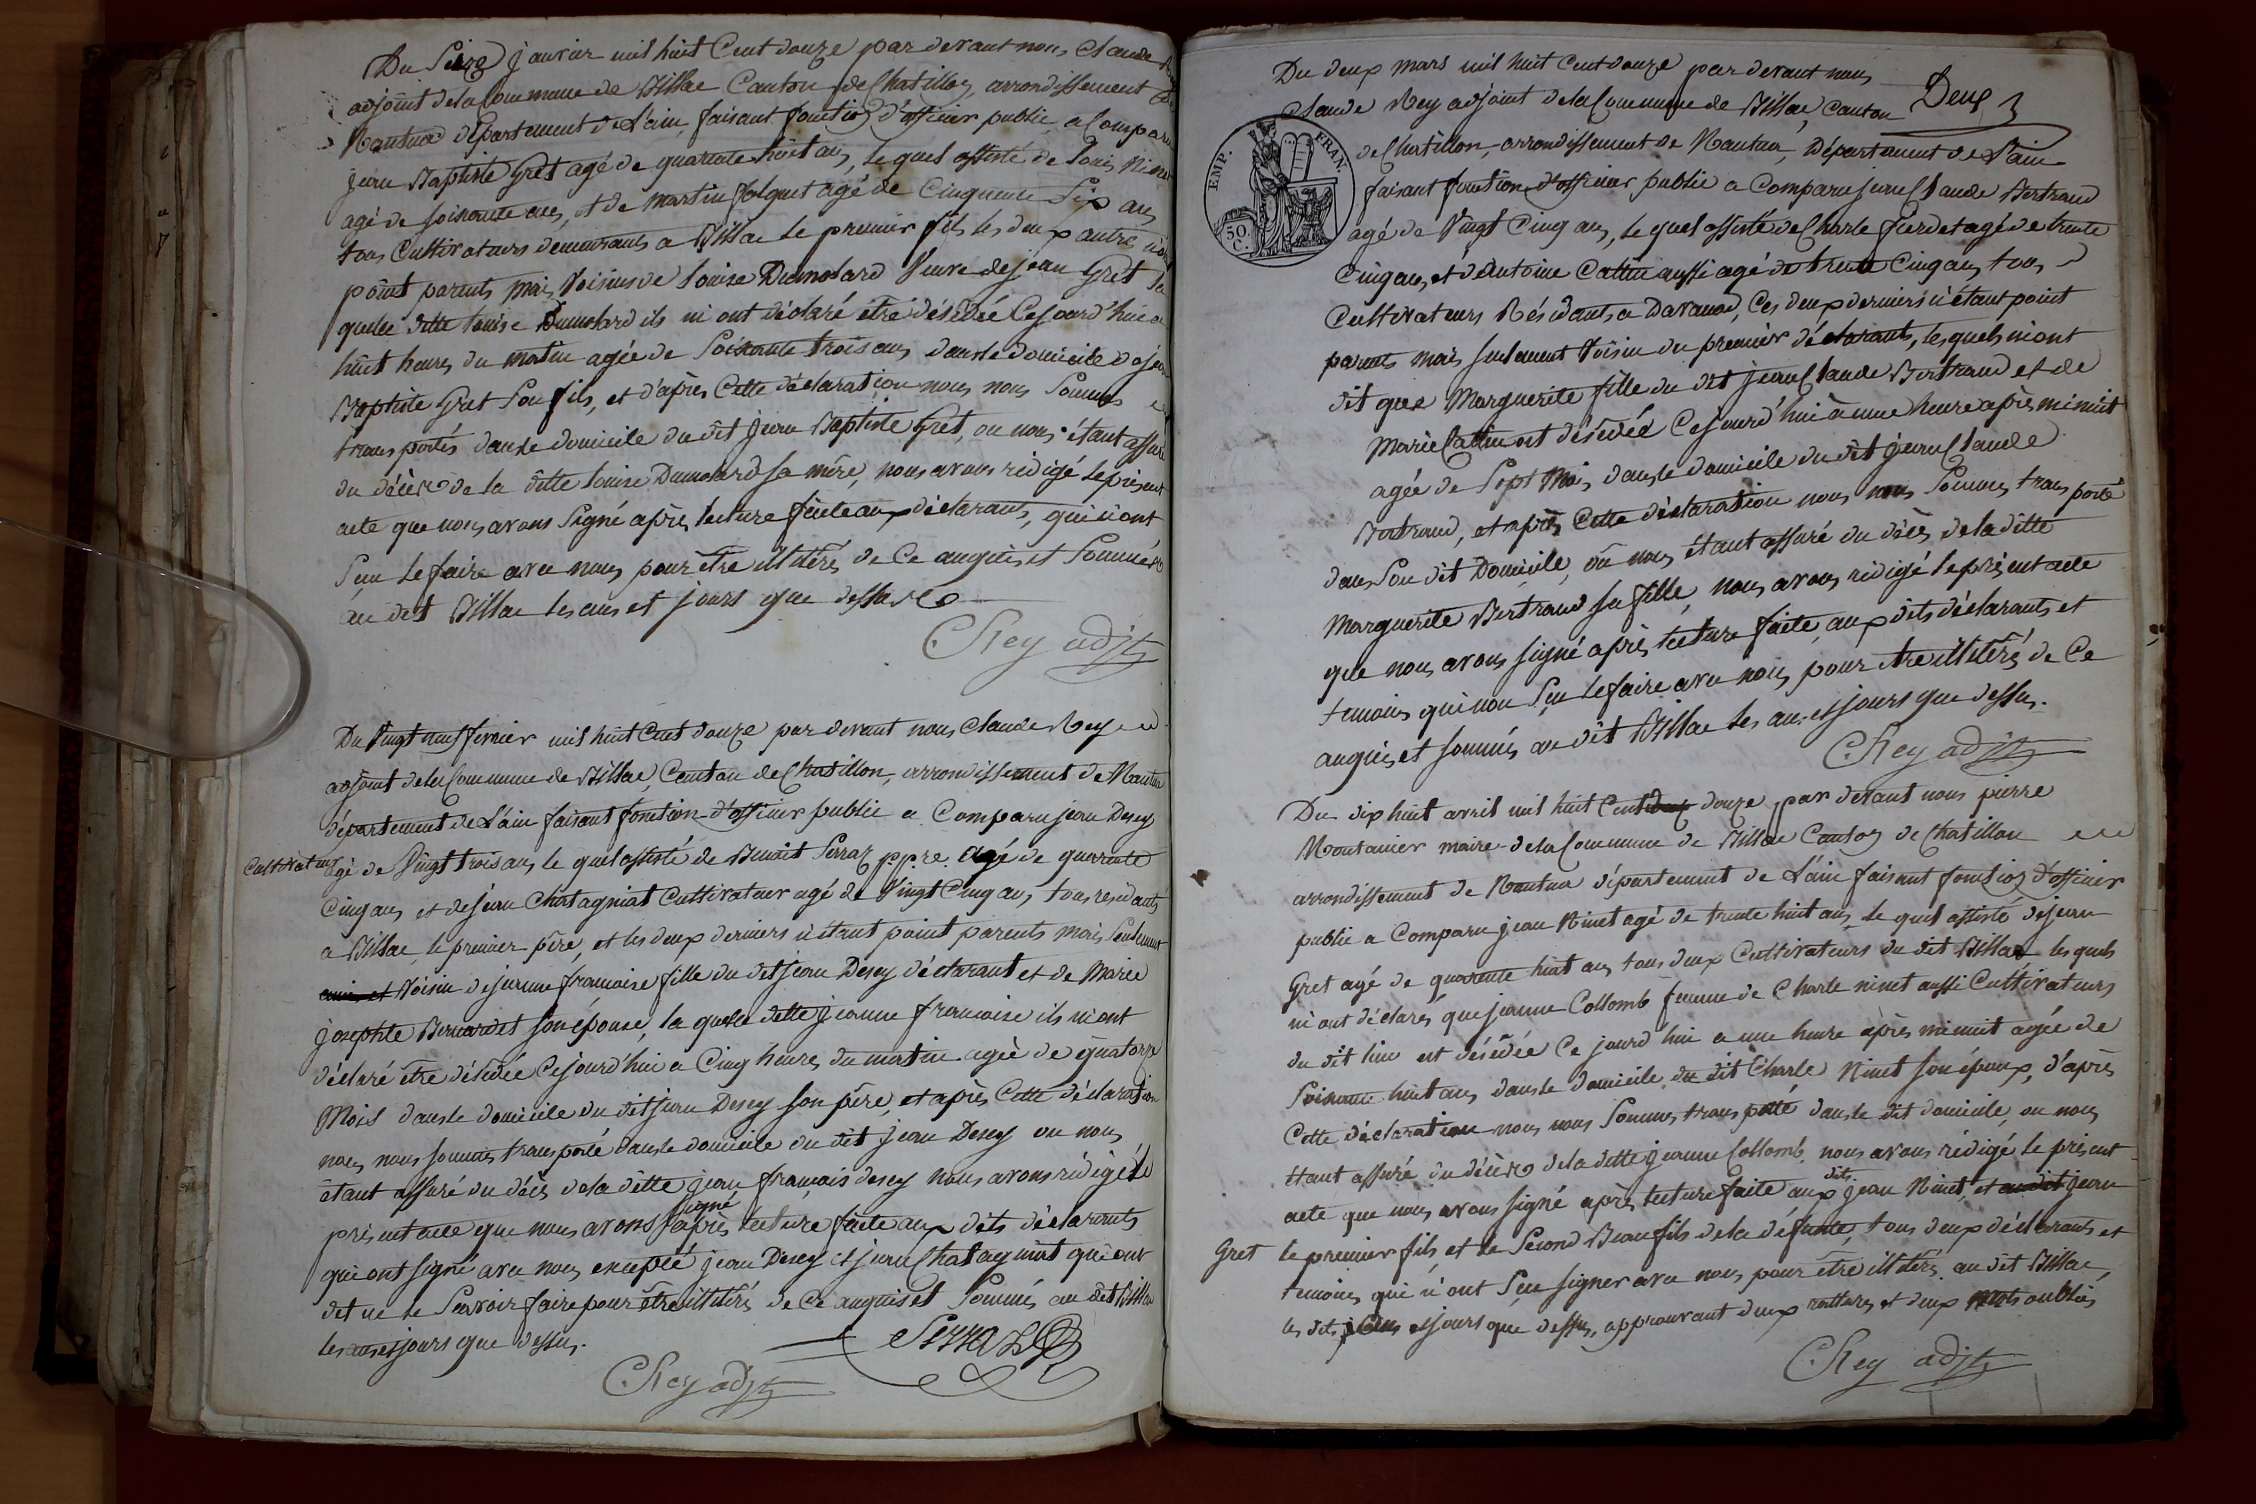 Du Seize janvier mil huit Cent douze par devant nous Claude
adjoint de la Commune de Billiac Canton de Chatillon, arrondissement de
Nantua département de L'ain, faisant fonction d'officier public, a Comparu
jean Baptiste Gret agé de quarante huit ans, le quel assisté de Louis Ninet
agé de soixante ans, et de Martin folquet agé de Cinquante Six ans
tous Cultivateurs demeurants a Billiac le premier fils les deux autres
point parents mais Voisins de Louise Dumolard Veuve de jean Gret la
quelle ditte louise Dumolard ils m'ont déclaré être désédée Cejourd'hui a
huit heures du matin agée de Soixante trois ans dans le domicile de jean
Baptiste Gret Son fils, et d'après Cette déclaration nous nous Sommes
transportés dans le domicile du dit jean Baptiste Gret, ou nous étant assuré
du décès de la ditte louise Dumolard sa mère, nous avons rédigé le présent
acte que nous avons Signé après lecture faite aux déclarants, qui n'ont
Seu le faire avec nous pour être illitérés de Ce anquis et Sommés
au dit Billiac les ans et jours que dessus
CRey adjt
Du Vingt neuf fevrier mil huit Cent douze par devant nous Claude Rey
adjoint de la Commune de Billiac, Canton de Chatillon, arrondissement de Nantua
département de L'ain faisant fonction d'officier public a Comparu jean Desey
Cultivateur agé de Vingt trois ans, le quel assisté de Benoit Serraz ppre. agé de quarante
Cinq ans et de jean Chatagniat Cultivateur agé de Vingt Cinq ans, tous residants
a Billiac, le premier père, et les deux derniers n'étant point parents mais Seulement
amis et Voisin de jeanne françoise fille du dit jean Desey déclarant et de Marie
josephte Bernardet son épouse, la quelle ditte jeanne françoise ils m'ont
déclaré être désédée Cejourd'hui a Cinq heures du matin agée de quatorze
Mois dans le domicile du dit jean Desey son père, et après Cette déclaration
nous nous sommes transporté dans le domicile du dit jean Desey ou nous
étant assuré du décès de la ditte jean françois desey nous avons rédigé le
signé
présent acte que nous avons après lecture faite aux dits déclarants
qui ont signé avec nous excepté jean Desey et jean Chatagniat qui ont
dit ne le Savoir faire pour être illitérés de Ce anquis et Sommés au dit Billiac
les ans et jours que dessus.
Serraz
CRey adjt
Du deux mars mil huit Cent douze par devant nous
Deux
Claude Rey adjoint de la Commune de Billiac, Canton
de Chatillon, arrondissement de Nantua, Département de L'ain
EMP. FRAN.
50 C.
faisant fonction d'officier public a Comparu jean Claude Bertrand
agé de Vingt Cinq ans, le quel assisté de Charle fierdet agé de trente
Cinq ans, et d'Antoine Cattin aussi agé de trente Cinq ans tous
Cultivateurs Résidants a Davanod, Ces deux derniers n'étant point
parents mais seulement Voisin du premier déclarants, les quels m'ont
dit que Marguerite fille du dit jean Claude Bertrand et de
Marie Cattin est désédée Cejourd'hui à une heure après minuit
agée de Sept Mois dans le domicile du dit jean Claude
Bertrand, et après Cette déclaration nous nous Sommes transporté
dans Son dit Domicile, où nous étant assuré du décès de la ditte
Marguerite Bertrand sa fille, nous avons rédigé le présent acte
que nous avons signé après lecture faite, aux dits déclarants et
temoins qui non Seu le faire avec nous pour être illitérés de Ce
anquis et sommés au dit Billiac les an et jours que dessus.
CRey adjt
Du dix huit avril mil huit Cent deux douze par devant nous pierre
Montanier maire de la Commune de Billiac Canton de Chatillon
arrondissement de Nantua département de L'ain faisant fonction d'officier
public a Comparu jean Ninet agé de trente huit ans, le quel assisté de jean
Gret agé de quarante huit ans tous deux Cultivateurs du dit Billiac les quels
m'ont déclarés que jeanne Collomb femme de Charle ninet aussi Cultivateurs
du dit lieu est désédée Ce jourd'hui a une heure après minuit agée de
Soixante huit ans, dans le domicile du dit Charle Ninet son époux, d'après
Cette déclaration nous nous Sommes transporté dans le dit domicile, ou nous
étant assuré du décès de la ditte jeanne Collomb nous avons rédigé le présent
dits
acte que nous avons signé après lecture faite aux jean Ninet, et au dit jean
Gret le premier fils, et le Second Beaufils de la défunte, tous deux déclarants et
temoins qui n'ont Seu signer avec nous pour être illitérés au dit Billiac,
les dits ans et jours que dessus, approuvant deux rattures et deux Mots oubliés
CRey adjt